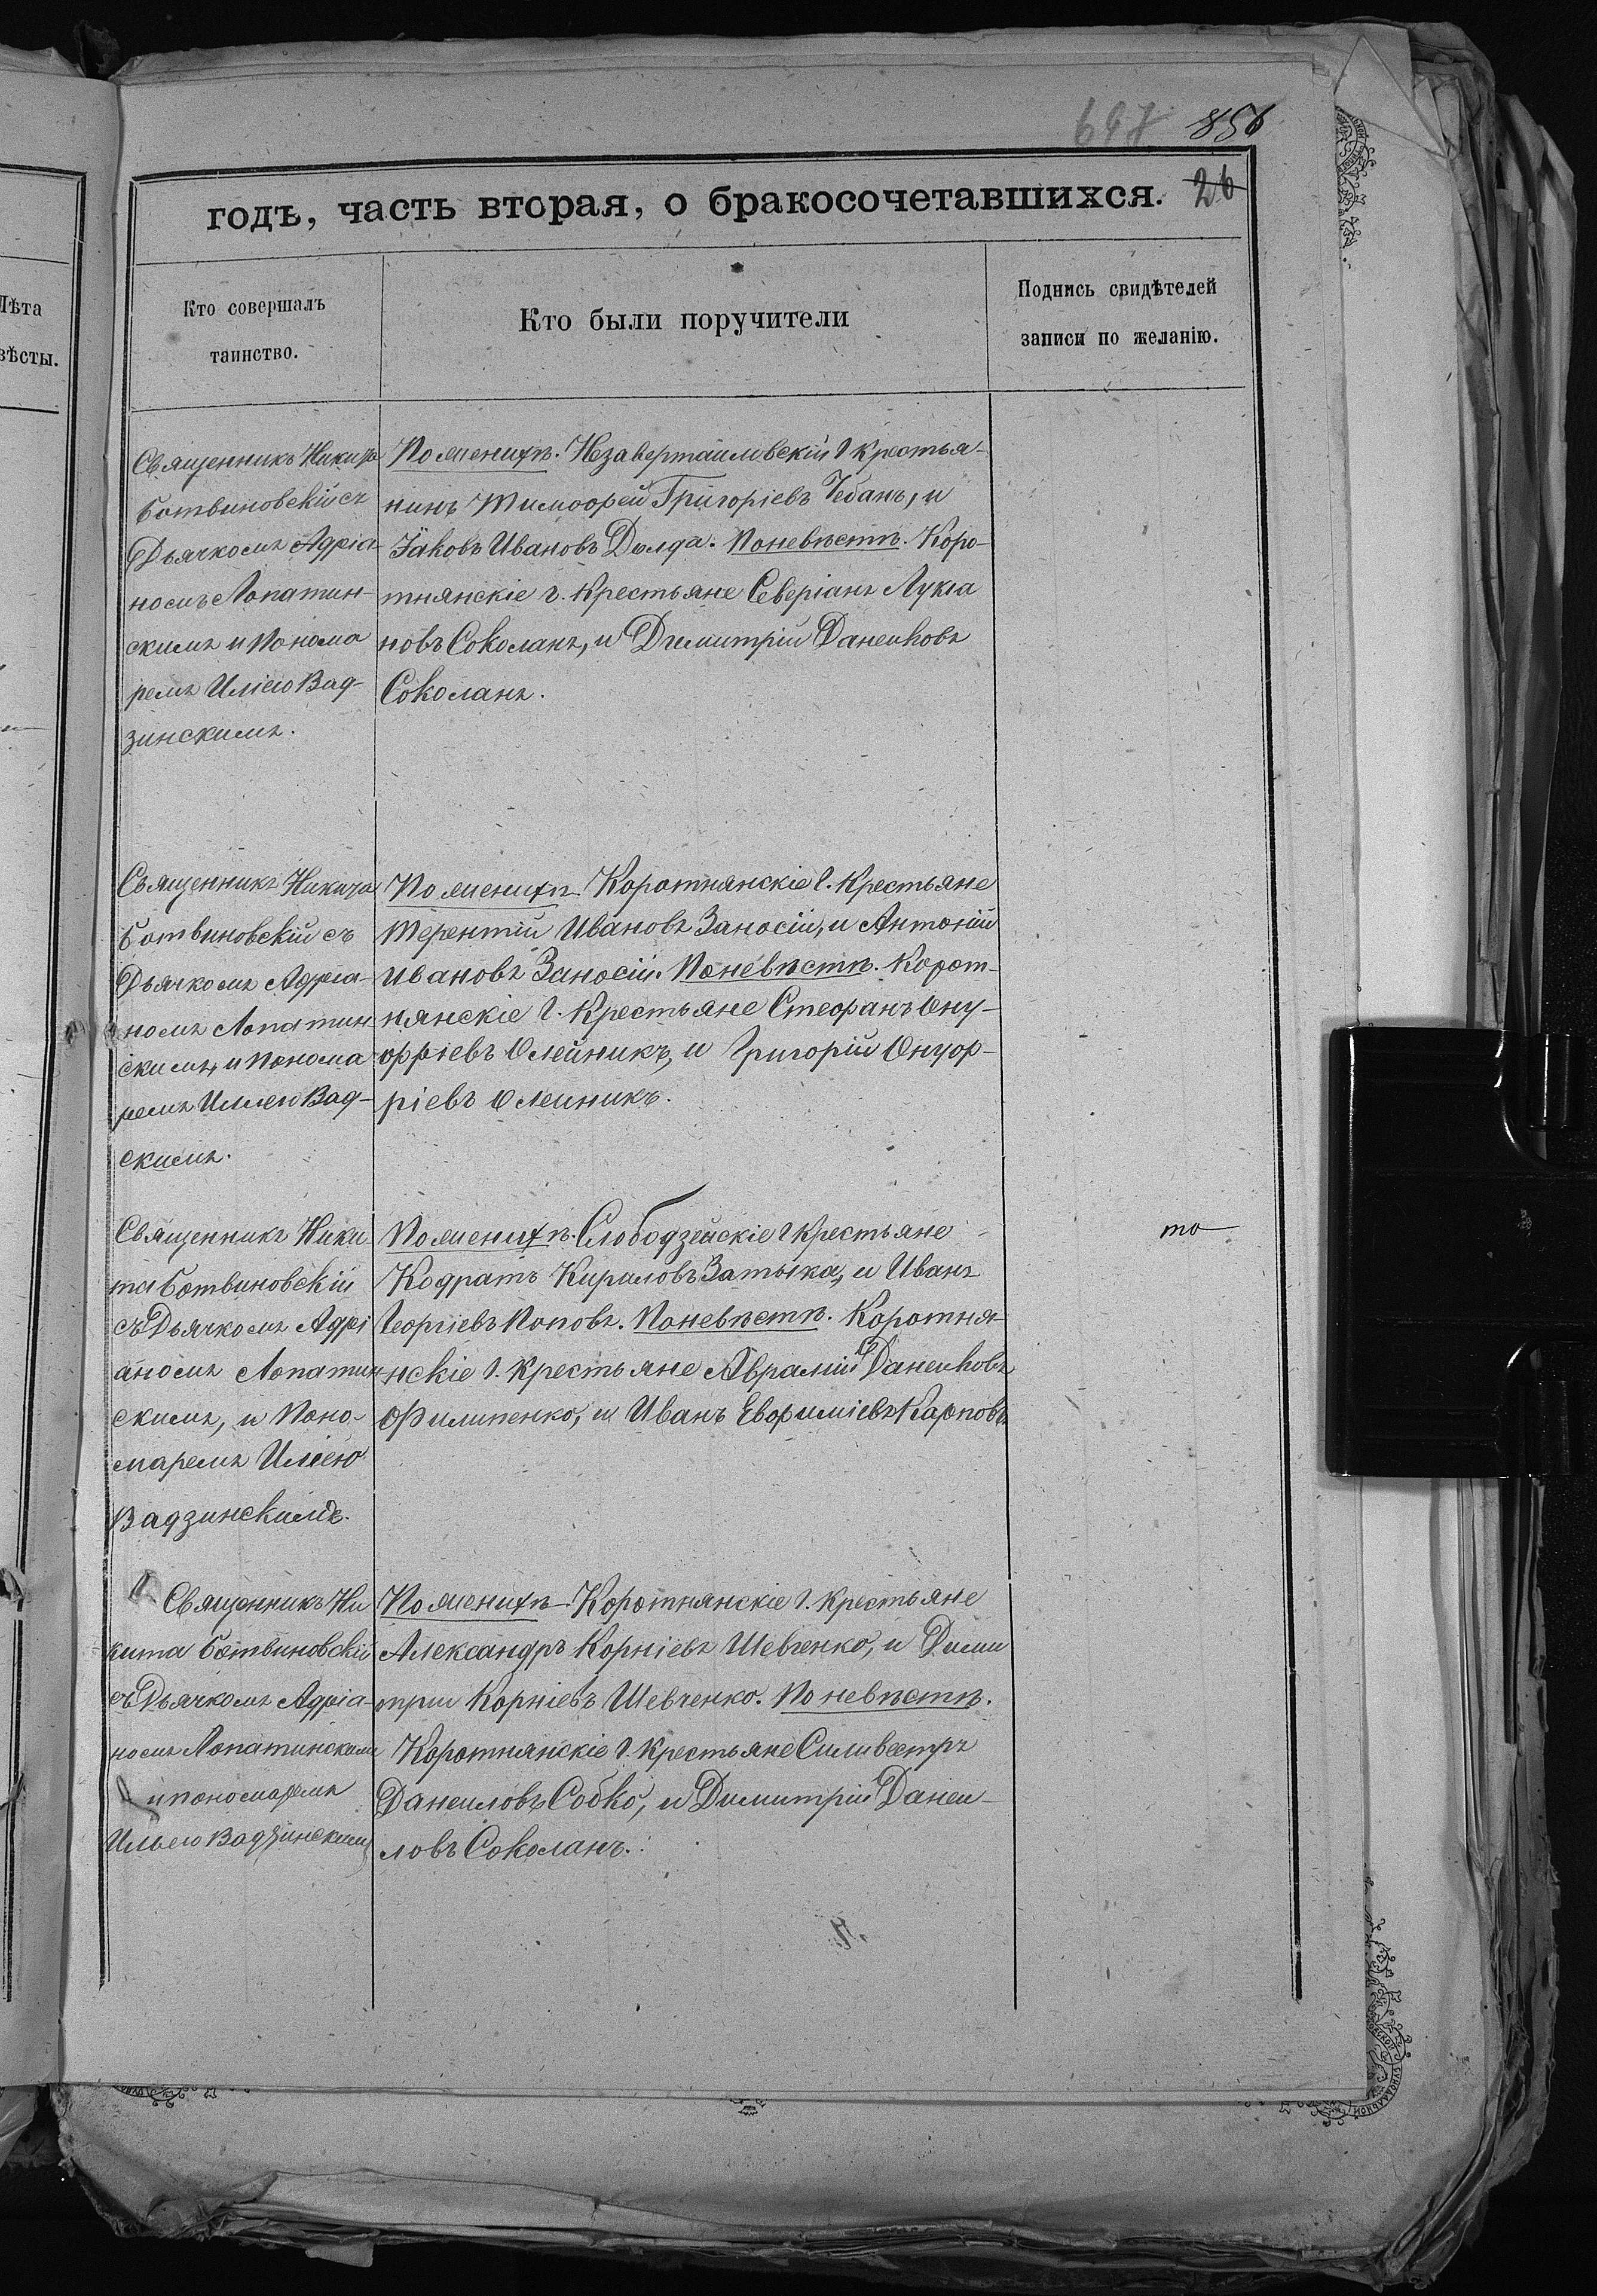 697 856
годъ, часть вторая, о бракосочетавшихся. 26
Лѣта
вѣсты.
Кто совершалъ
таинство.
Кто были поручители
Подпись свидѣтелей
записи по желанію.
Священникъ Никита
Ботвиновскій съ
Дьячкомъ Адріа-
номъ Лопатин-
скимъ и Понома
ремъ Иліею Вад-
зинскимъ.
По женихѣ. Незавертаиловскій г крестья-
нинъ Тимофей Григоріевъ Чебанъ, и
Іаковъ Ивановъ Долда. По невѣстѣ. Коро-
тнянскіе г. крестьяне Северіанъ Лукіа
новъ Соколанъ, и Димитрій Данеиловъ
Соколанъ.
Священникъ Никита
Ботвиновскій съ
Дьячкомъ Адріа-
номъ Лопатин
скимъ, и Понома
ремъ Иліею Вад-
скимъ.
По женихѣ. Коротнянскіе г. Крестьяне
Терентій Ивановъ Заносій, и Антоній
Ивановъ Заносій. По невѣстѣ. Корот-
нянскіе г. Крестьяне Стефанъ Ону-
фріевъ Олейникъ, и Григорій Онуф-
ріевъ Олейникъ.
Священникъ Ники
та Ботвиновскій
съ Дьячкомъ Адрі
аномъ Лопатин
скимъ, и Поно-
маремъ Иліею
Вадзинскимъ.
По женихѣ. Слободзейскіе г Крестьяне
Кодратъ Кириловъ Затыка, и Иванъ
Георгіевъ Поповъ. По невѣстѣ. Коротня-
нскіе г. Крестьяне Аврамій Данеиловъ
Филипенко, и Иванъ Евфиміевъ Карповъ
то
Священникъ Ни
кита Ботвиновскій
съ Дьячкомъ Адріа-
номъ Лопатинскимъ
и пономаремъ
Ильею Вадзинскимъ
По женихѣ - Коротнянскіе г. Крестьяне
Александръ Корніевъ Шевченко, и Дими
трій Корніевъ Шевченко. По невѣстѣ.
Коротнянскіе г. Крестьяне Силивестръ
Данеиловъ Собко, и Димитрій Данеи-
ловъ Соколанъ.